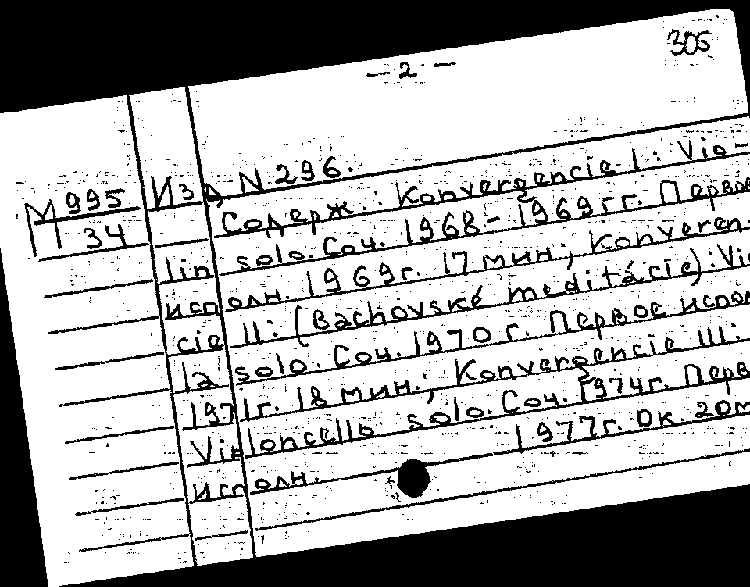 305
— 2 —
М 995 Изд. N 296.
П 34 Содерж.: Konvergencie I: Vio-
lin solo. Соч. 1968–1969 гг. Первое
исполн. 1969 г. 17 мин.; Konvergen-
cie II: (Bachovské meditácie): Vio
la solo. Соч. 1970 г. Первое испол
1971 г. 18 мин.; Konvergencie III:
Violoncello solo. Соч. 1974 г. Перв
исполн. 1977 г. Ок. 20 м